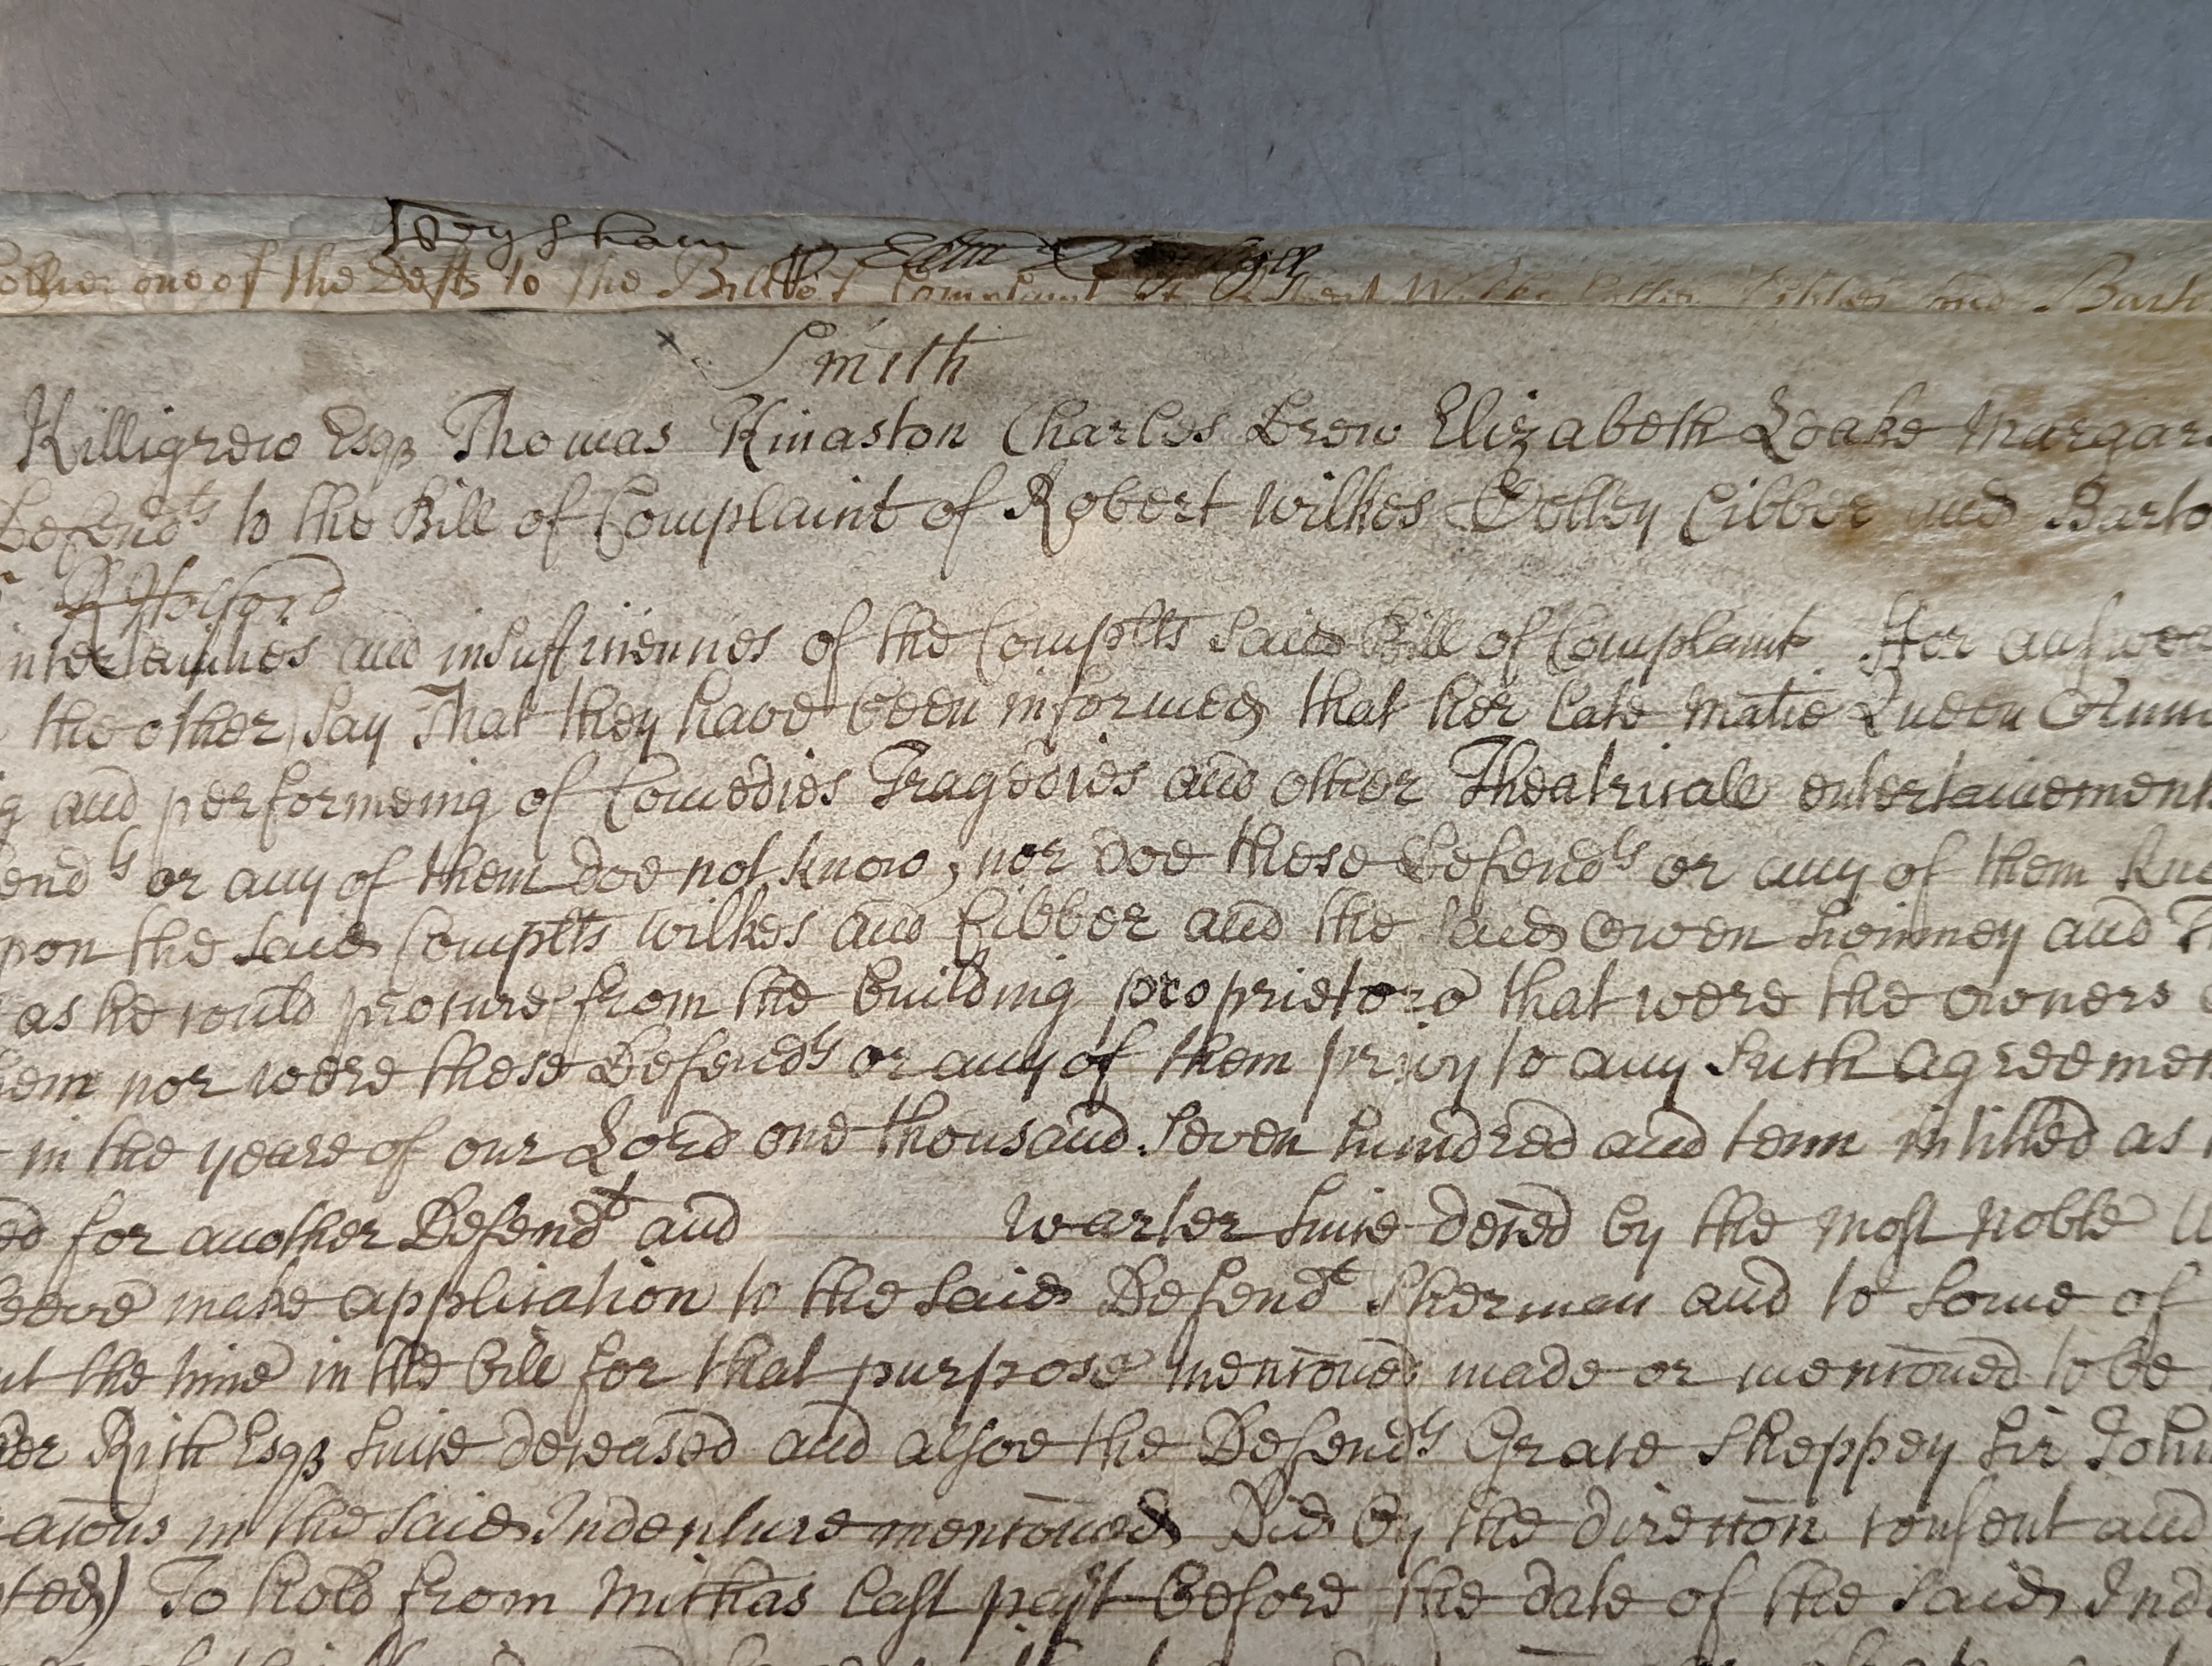 one of the Defts to the Bill of Complaint of Robert Wilkes Colley Cibber and Barto
Smith
Killigrew Esqr Thomas Kinaston Charles Drew Elizabeth Leake Margar
Defendts to the Bill of Complaint of Robert Wilkes Colley Cibber and Barto
R Holford
and insufficiencies of the Complts said Bill of Complaint For answer
the other) say That they have been informed that her late Matie Queen Anne
g and performeing of Comedies Tragedies and other Theatricale entertainement
end ts or any of them doe not know, nor doe these Defendts or any of them Kno
pon the said Complts Wilkes and Cibber and the said Owen Swinney and
as he could procure from the building proprietors that were the owners
hem nor were these Defendts or any of them privy to any such agreemen
in the yeare of our Lord one thousand seven hundred and tenn intitled as
ed for another Defendt and Warter since deced by the most noble W
make application to the said Defendt Sherman and to some of
ut the time in the bill for that purpose mencõned made or mencõned to be
er Rich Esqr since deceased and alsoe the Defendts Grace Sheppey Sir John
acõns in the said Indenture mencõned Did by the direccõn consent and
ted) To hold from Michas last past before the date of the said Ind